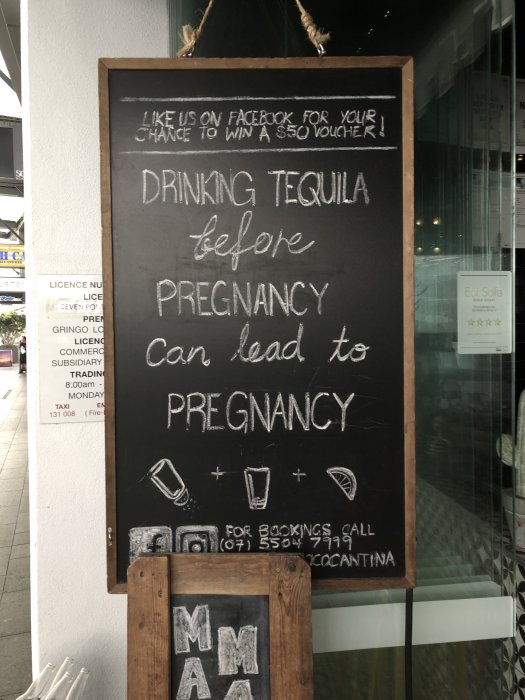 LIKE US ON FACEBOOK FOR YOUR
CHANCE TO WIN A $50 VOUCHER!
DRINKING TEQUILA
before
PREGNANCY
can lead to
PREGNANCY
+ +
FOR BOOKINGS CALL
(07) 5504 7999
OCOCANTINA
M M
A A
LICENCE NU
LICE
SEVEN PO
PREM
GRINGO LO
LICENC
COMMERC
SUBSIDIARY
TRADING
8:00am -
MONDAY
TAXI EM
131 008 (Fire-
Eat Safe